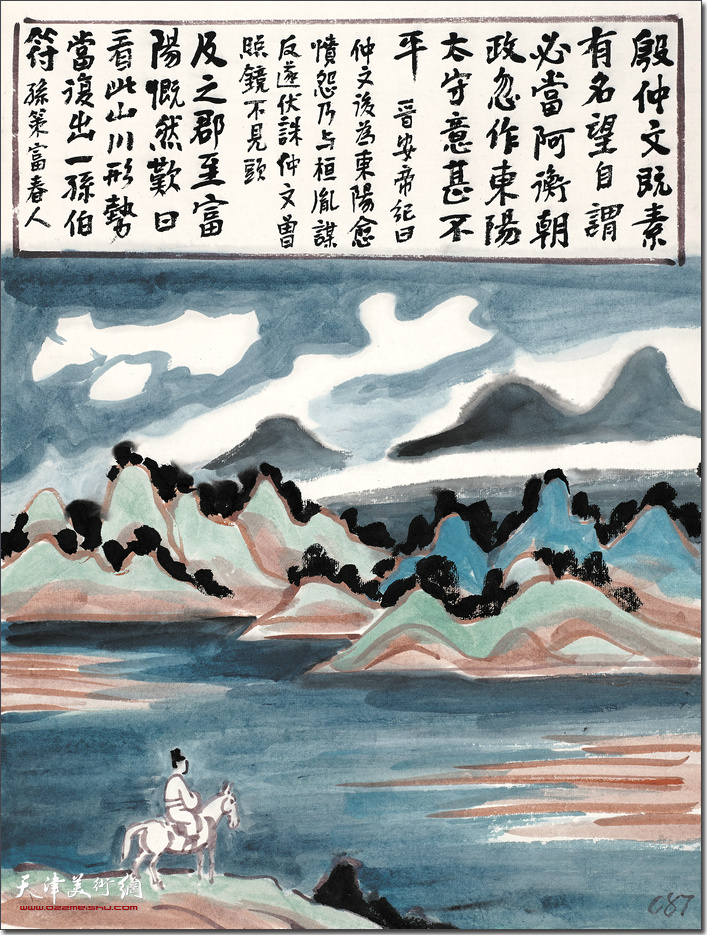 殷仲文既素
有名望自謂
必當阿衡朝
政忽作東陽
太守意甚不
平 晉安帝紀曰
仲文後為東陽愈
憤怨乃与桓胤謀
反遂伏誅仲文曾
照鏡不見頭
及之郡至富
陽慨然歎曰
看此山川形勢
當復出一孫伯
符 孫策富春人
天津美術網
www.022meishu.com
087